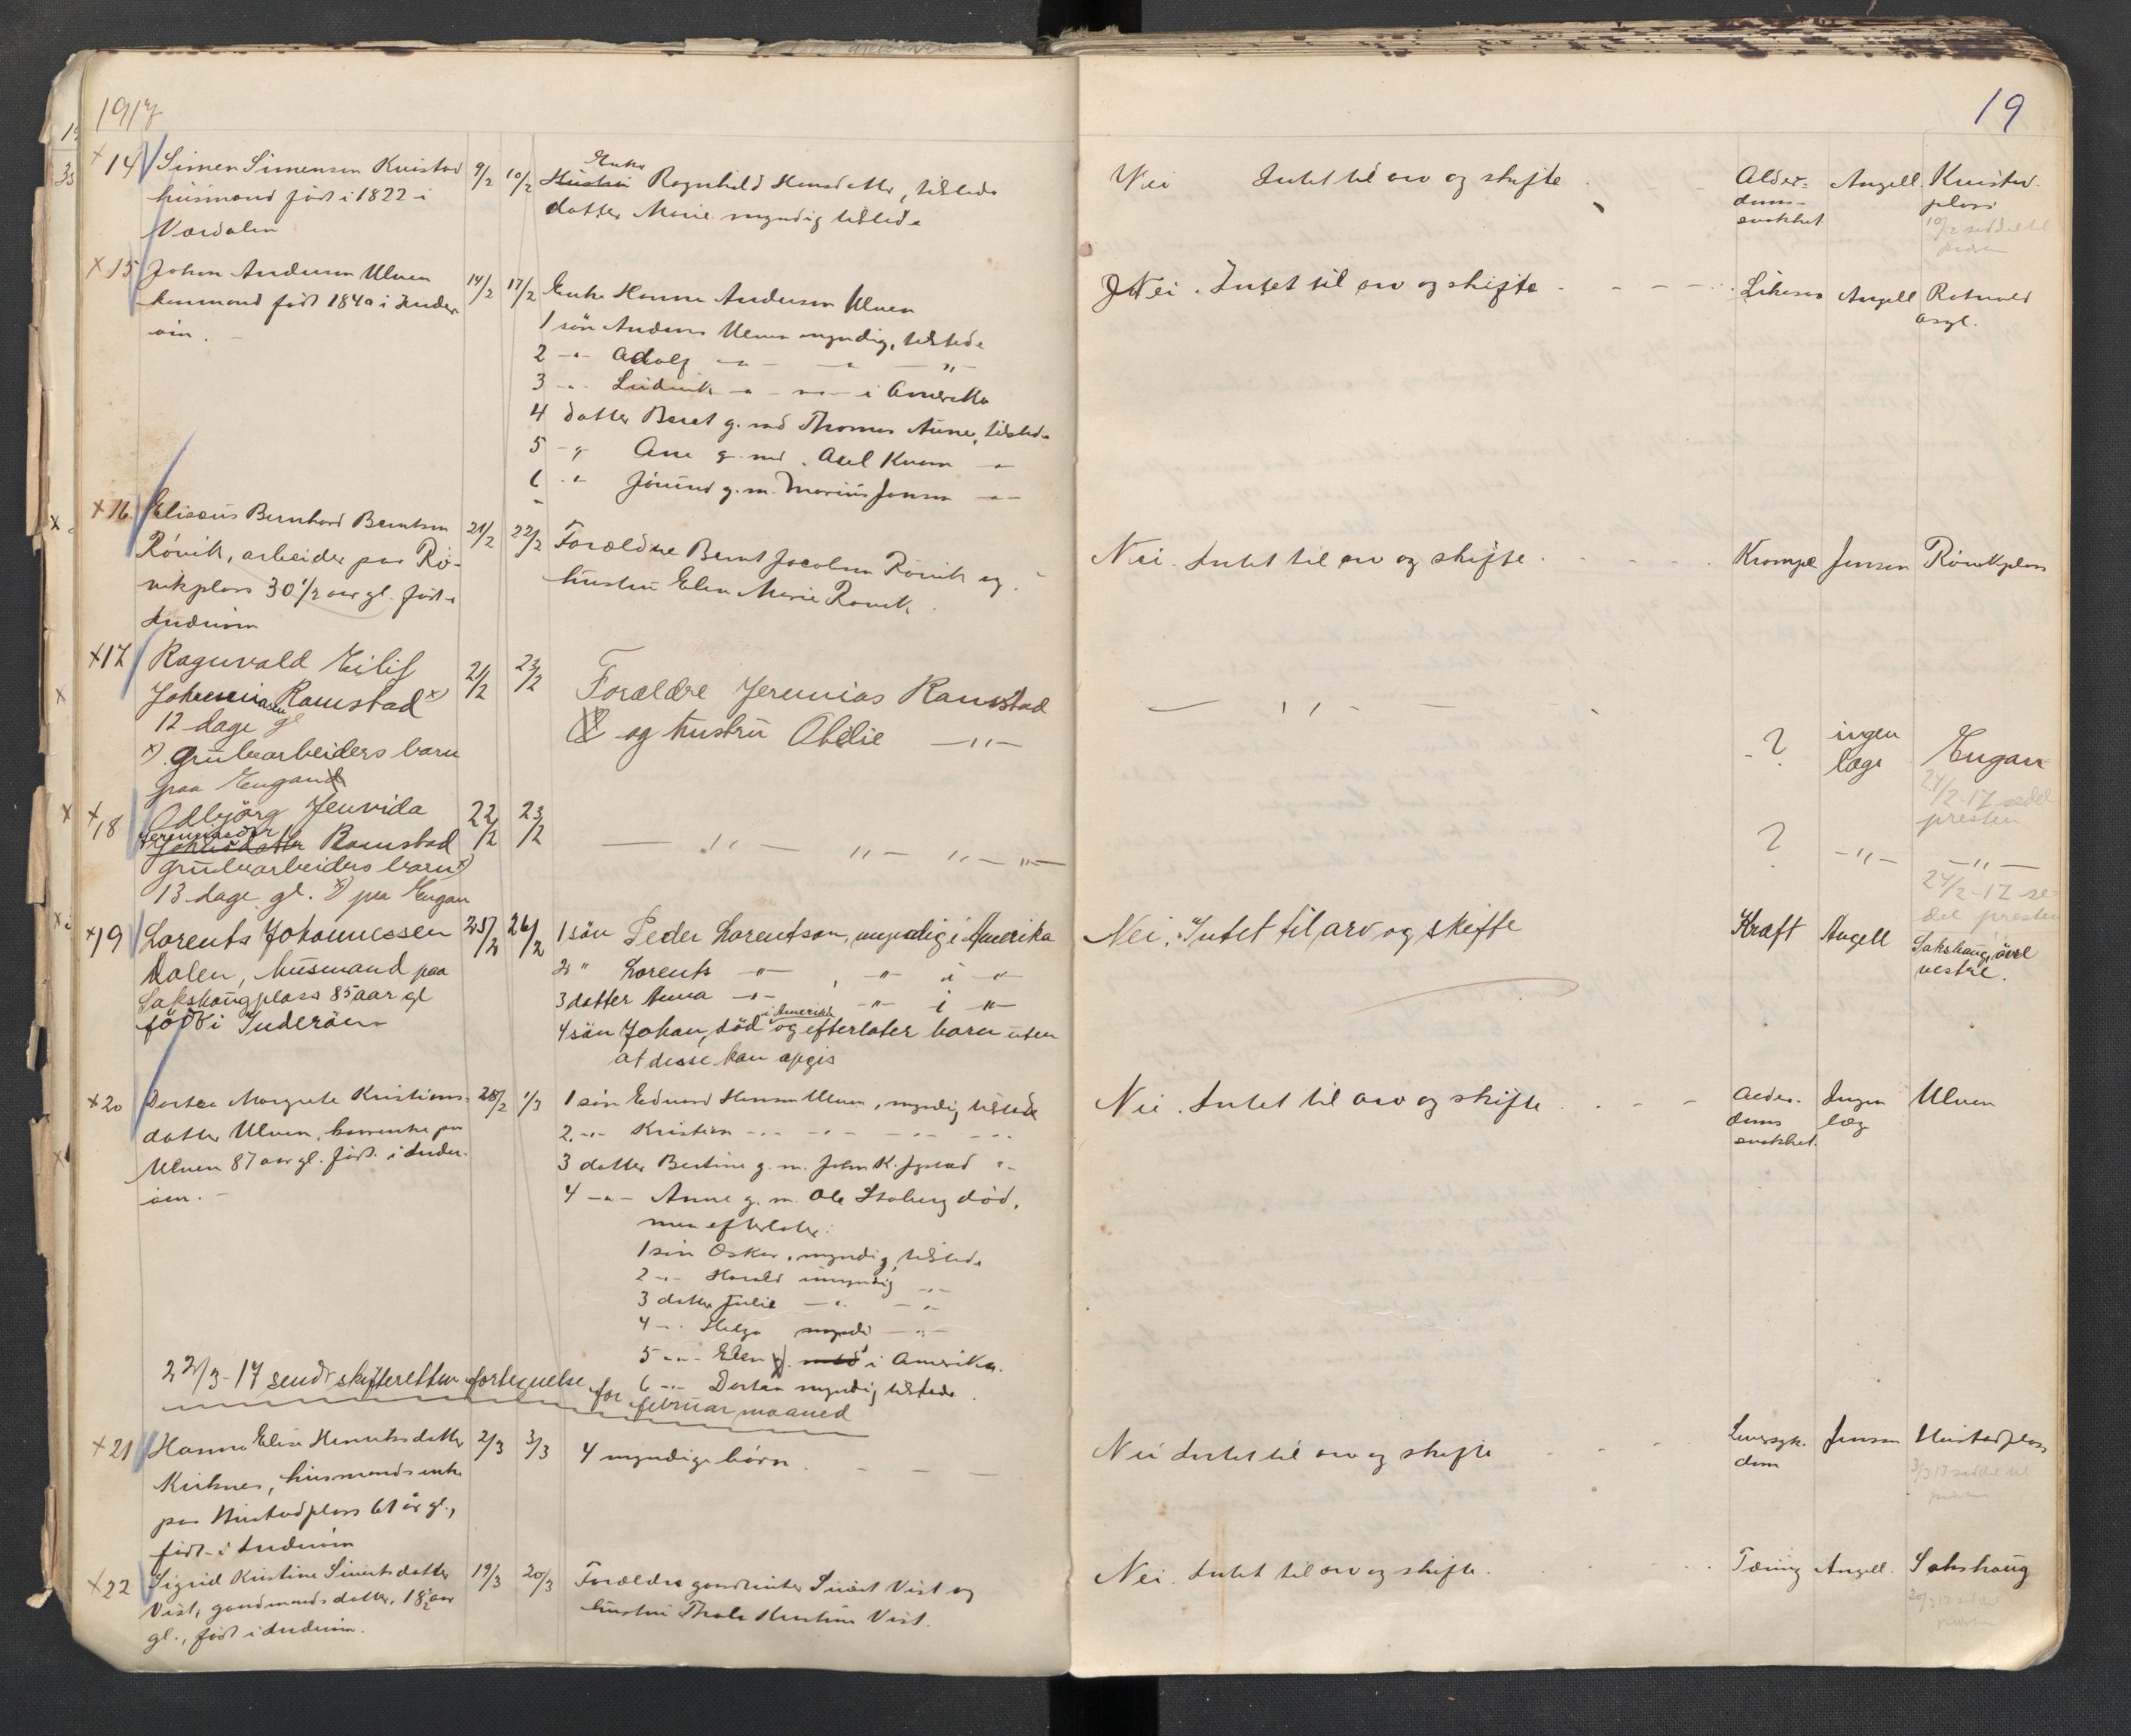 1917
19
14 Simen Simensen Kvistad 9/2 10/2 Enke
husmand født i 1822 i Hustru Ragnhild Hansdatter, tilstede
Værdalen datter Marie myndig tilstede
Nei Intet til arv og skifte Alder- Angell Kvistad-
doms- plass
svakhet 10/2 seddel til
15 Johan Andersen Ulven 14/2 17/2 Enke Hanna Andersen Ulven
født 1840 i Inder- 1 sön Anders Ulven myndig, tilstede
öen. 2 -"- Adolf -"- -"- -"-
3 -"- Ludvik -"- -"- i Amerika
4 datter Beret g. med Thomas Aune, tilstede
5 -"- Ane g. med Axel Kvam -"-
6 -"- Jörund g. m. Marius Jensen -"-
Nei. Intet til arv og skifte Angell Rotvold
asyl.
16. Elisæus Bernhard Berntsen 21/2 22/2 Forældre Bernt Jacobsen Rövik og
Rövik, arbeider paa Rö- hustru Elen Marie Rövik
vikplass 30 1/2 aar gl. født i
Inderöen
Nei. Intet til arv og skifte. Krampe Jensen Rövikplass
17 Ragnvald Eilif 21/2 23/2 Forældre Jeremias Ramstad
Jeremiassen Ramstad x) og hustru Obelie -"-
12 dage gl
x) Grubearbeiders barn
paa Engan
-"- - ? ingen Engan
læge 24/2-17 sedel
presten
18 Odbjörg Jenvida 22/2 23/2 -"- -"- -"- -"-
Jeremiasdtr
Ramstad
grubearbeiders barn x)
13 dage gl. x) paa Engan
? -"- -"-
24/2-17 se-
del presten
19 Lorents Johannessen 25/2 26/2 1 sön Peder Lorentsen, myndig i Amerika
Dalen, husmand paa 2 " Lorents -"- , -"- i -"-
Sakshaugplass 85 aar gl 3 datter Anna -"- -"- i -"-
født i Inderöen 4 sön Johan, död i Amerika og efterlater barn uten
at desse kan opgis
Nei. Intet til arv og skifte Kræft Angell Sakshaug, övre
vestre.
20 Dortea Margrete Kristians- 28/2 1/3 1 sön Edvard Hansen Ulven, myndig tilstede
datter Ulven, paa 2. -"- Kristian -"- -"- -"- -"-
Ulven 87 aar gl. født i Inder- 3 datter Bertine g. m. John K. Jystad -"-
öen. - 4 -"- Anne g. m. Ole Stoberg död,
men efterlater:
1 sön Oskar, myndig, tilstede
2 -"- Harald umyndig -"-
3 datter Julie -"- -"-
4 -"- Helga myndig -"-
5 -"- Elen i Amerika.
6 -"- Dortea myndig tilstede.
Nei. Intet til arv og skifte Alder- Ingen Ulven
doms læge
svakhet
22/3-17 sendt skifteretten fortegnelse for februar maaned
21 Hanna Elise Henriksdatter 2/3 3/3 4 myndige börn.
Kirknes, husmandsenke
paa Hustadplass 61 år gl.,
født i Inderöen
Nei Intet til arv og skifte Leversyk- Jensen Hustadplass
dom 3/3 17 seddel til
22 Sigrid Kristine Sivertsdatter 19/3 20/3 Forældre gaardbruker Sivert Vist og
Vist, gaardmandsdatter, 18 1/2 aar hustru Thale Kristine Vist.
gl., født i Inderöen.
Nei. Intet til arv og skifte. Tæring Angell. Sakshaug
20/3 17